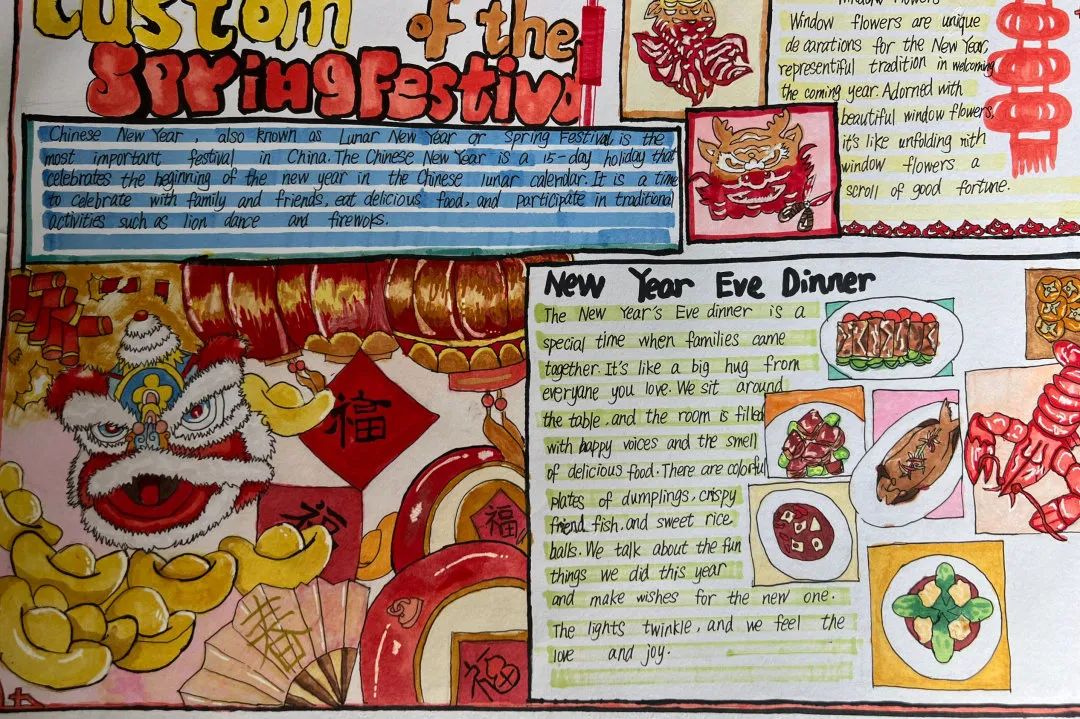 Custom of the
Spring Festiva
Chinese New Year, also known as Lunar New Year or Spring Festival is the
most important festival in China. The Chinese New Year is a 15-day holiday that
celebrates the beginning of the new year in the Chinese lunar calendar. It is a time
to celebrate with family and friends, eat delicious food, and participate in traditional
activities such as lion dance and firewoks.
Window flowers are unique
decarations for the New Year,
representiful tradition in welcoming
the coming year. Adorned with
beautiful window flowers,
it's like unfolding nith
window flowers a
scroll of good fortune.
福
福
春
New Year Eve Dinner
The New Year's Eve dinner is a
special time when families came
together. It's like a big hug from
everyane you love. We sit around
the table, and the room is filled
with happy voices and the smell
of delicious food. There are colorful
plates of dumplings, crispy
friend fish, and sweet rice
balls. We talk about the fun
things we did this year
and make wishes for the new one.
The lights twinkle, and we feel the
love and joy.